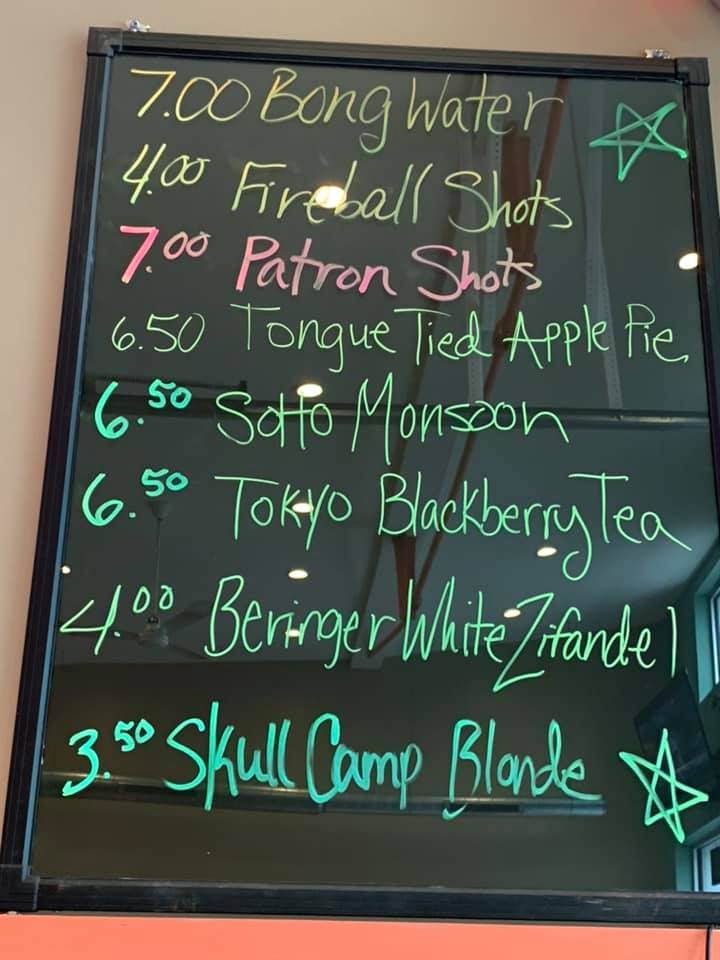 7.00 Bong Water
4.00 Fireball Shots
7.00 Patron Shots
6.50 Tongue Tied Apple Pie
6.50 Sotto Monsoon
6.50 Tokyo Blackberry Tea
4.00 Beringer White Zifandel
3.50 Skull Camp Blonde